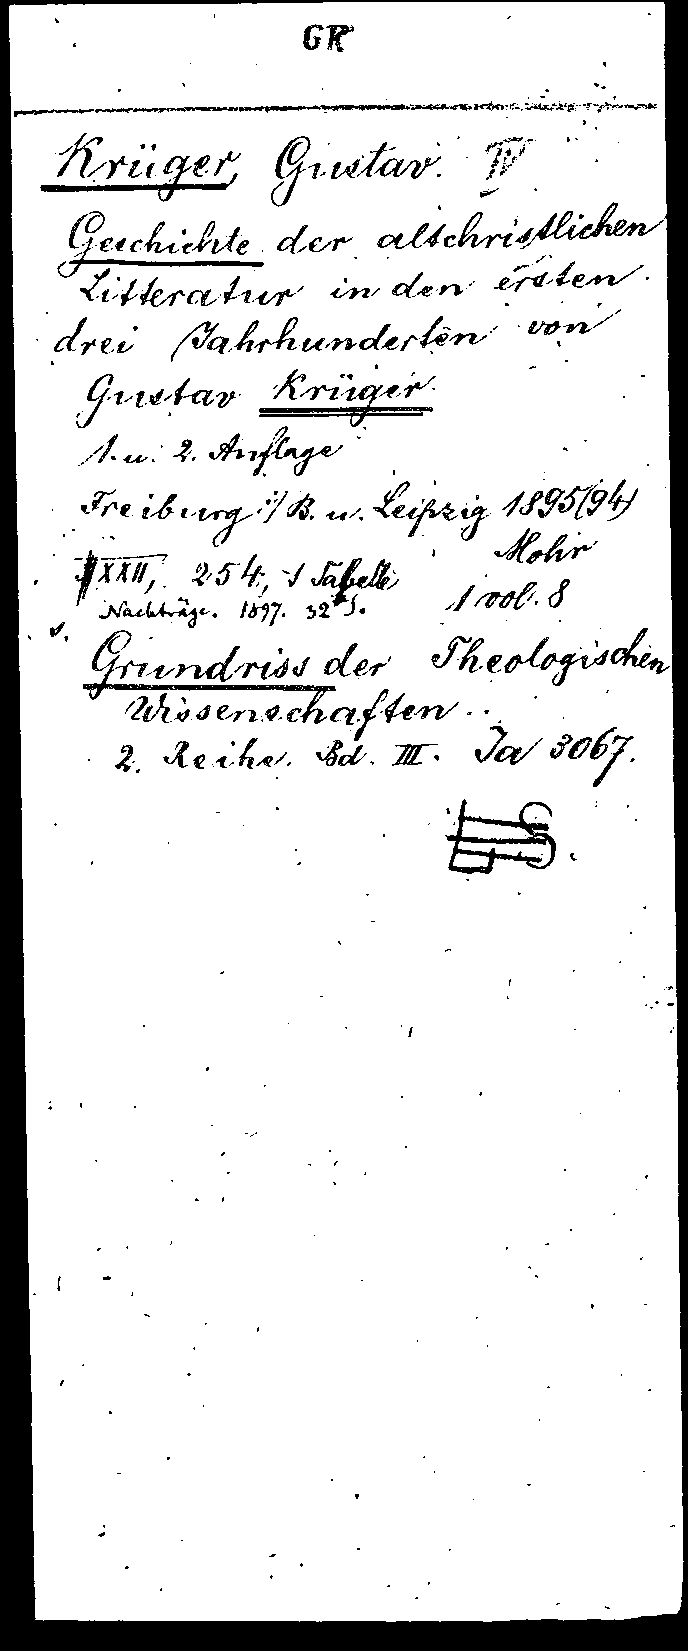 GK
Krüger, Gustav. IV
Geschichte der altchristlichen
Litteratur in den ersten
drei Jahrhunderten von
Gustav Krüger.
1. u. 2. Auflage
Freiburg i/B. u. Leipzig 1895(94)
Mohr
XXII, 254, 1 Tabelle
1 vol. 8
Nachträge. 1897. 32 S.
s.
Grundriss der Theologischen
Wissenschaften..
2. Reihe. Bd. III. Ia 3067.